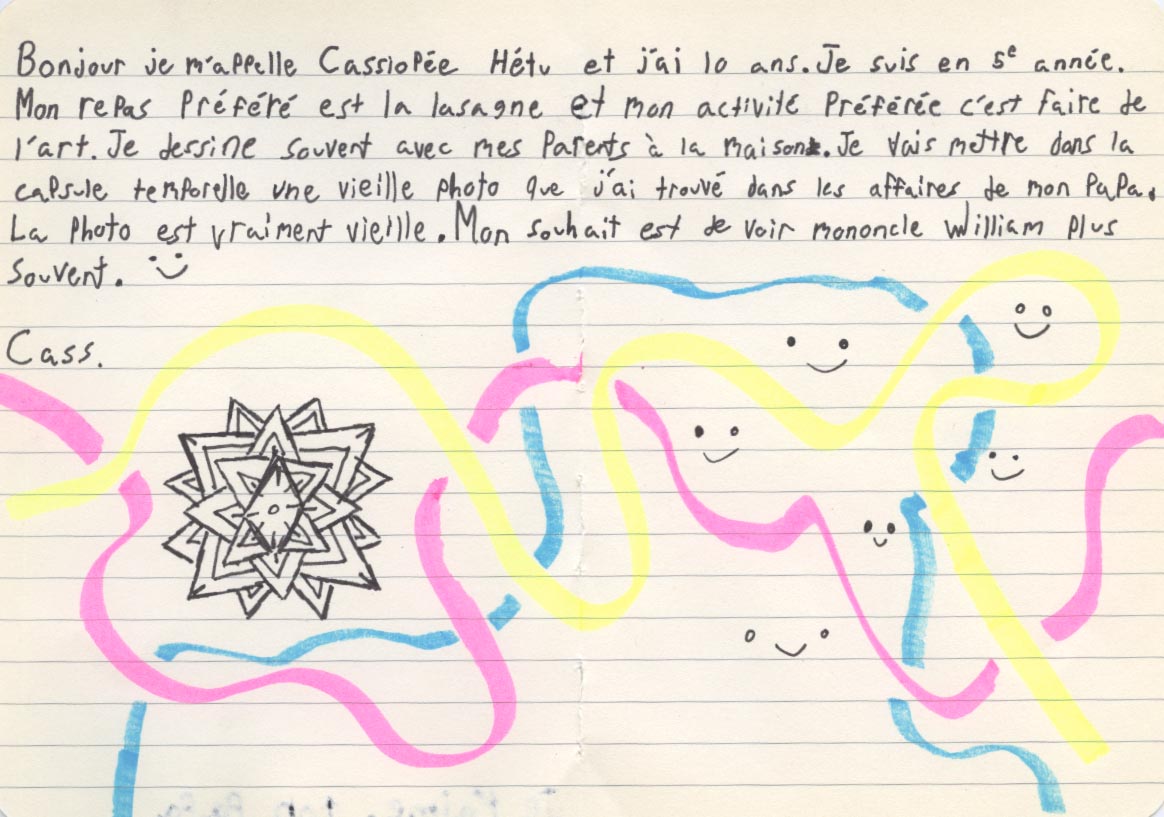 Bonjour je m'appelle Cassiopée Hétu et j'ai 10 ans. Je suis en 5e année.
Mon repas préféré est la lasagne et mon activité préférée c'est faire de
l'art. Je dessine souvent avec mes parents à la maison. Je vais mettre dans la
capsule temporelle une vieille photo que j'ai trouvé dans les affaires de mon papa.
La photo est vraiment vieille. Mon souhait est de voir mononcle William plus
souvent.
Cass.